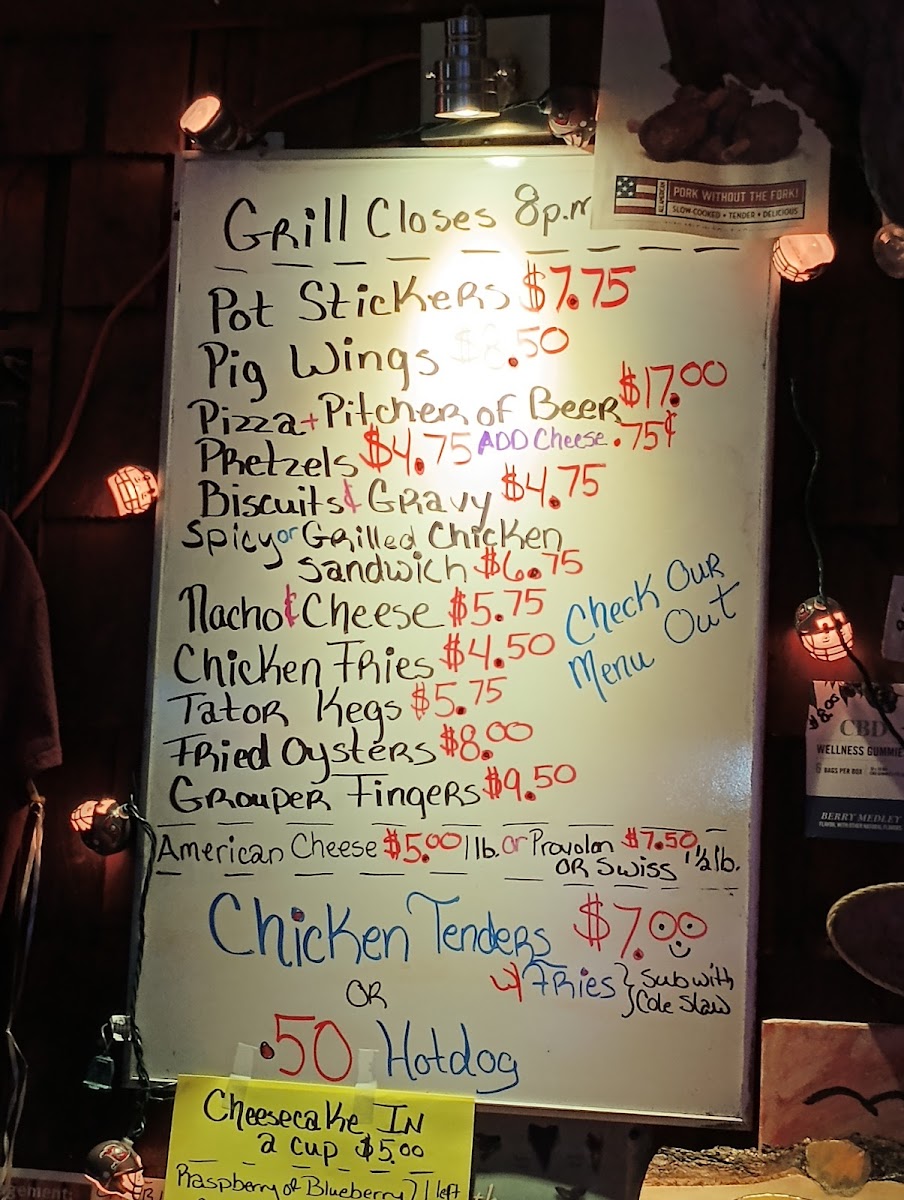 PORK WITHOUT THE FORK!
SLOW COOKED • TENDER • DELICIOUS
Grill Closes 8p.m
Pot Stickers $7.75
Pig Wings $8.50
Pizza + Pitcher of Beer $17.00
Pretzels $4.75 ADD Cheese .75¢
Biscuits & Gravy $4.75
Spicy or Grilled Chicken
Sandwich $6.75
Nacho & Cheese $5.75
Check Our
Menu Out
Chicken Fries $4.50
Tator Kegs $5.75
Fried Oysters $8.00
Grouper Fingers $9.50
American Cheese $5.00 1 lb. or Provolon $7.50
OR Swiss 1 1/2 lb.
Chicken Tenders $7.00
w/ Fries } Sub with
Cole Slaw
OR
.50 Hotdog
Cheesecake IN
a cup $5.00
Raspberry of Blueberry 1 left
$8.00
CBD
WELLNESS GUMMIE
BAGS PER BOX
BERRY MEDLEY